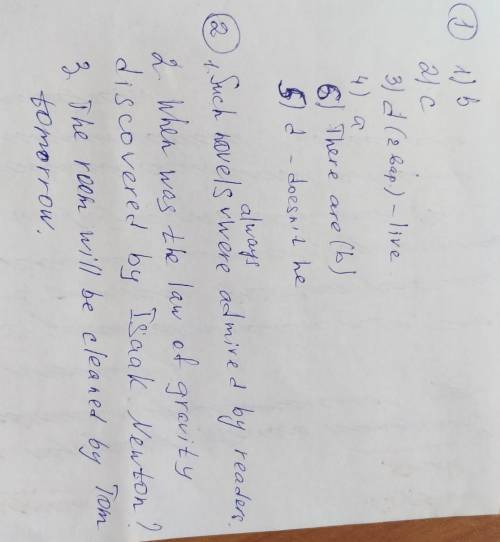 ① 1) b
2) c
3) d (2 вар) – live
4) a
6) There are (b)
5) d – doesn't he
② 1. Such novels always were admired by readers.
2. When was the law of gravity
discovered by Isaak Newton?
3. The room will be cleaned by Tom
tomorrow.